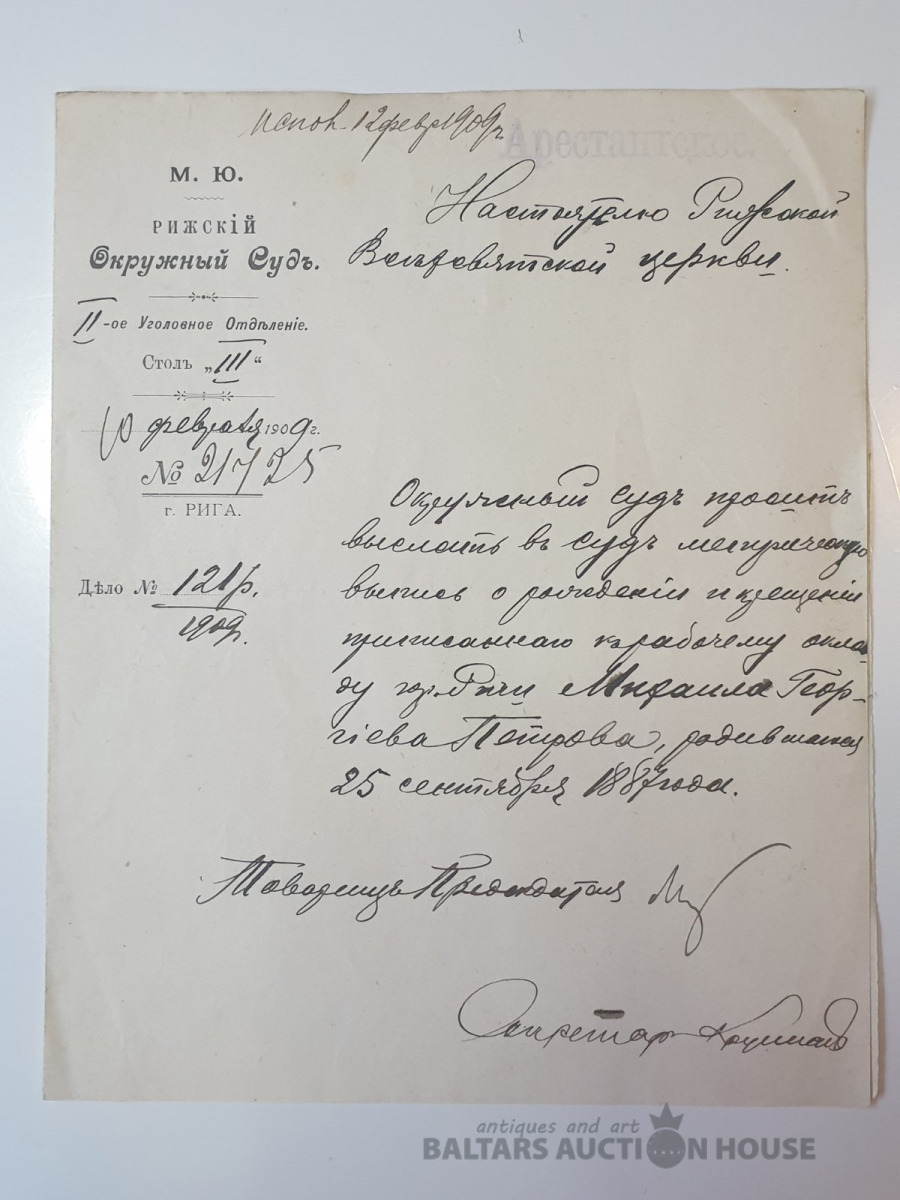 Испол. 12 февр 1909 г.
Арестантское.
М. Ю.
РИЖСКІЙ
Окружный Судъ.
II-ое Уголовное Отдѣленіе.
Столъ „III“
10 февраля 1909 г.
№ 21725
г. РИГА.
Дѣло № 121 р.
1909 г.
Настоятелю Рижской
Всѣхсвятской церкви.
Окружный Судъ проситъ
выслать въ Судъ метрическую
выпись о рожденіи и крещеніи
приписаннаго къ рабочему окла-
ду гор. Риги Михаила Геор-
гіева Петрова, родившагося
25 сентября 1887 года.
Товарищъ Предсѣдателя
Секретарь
antiques and art
BALTARS AUCTION HOUSE